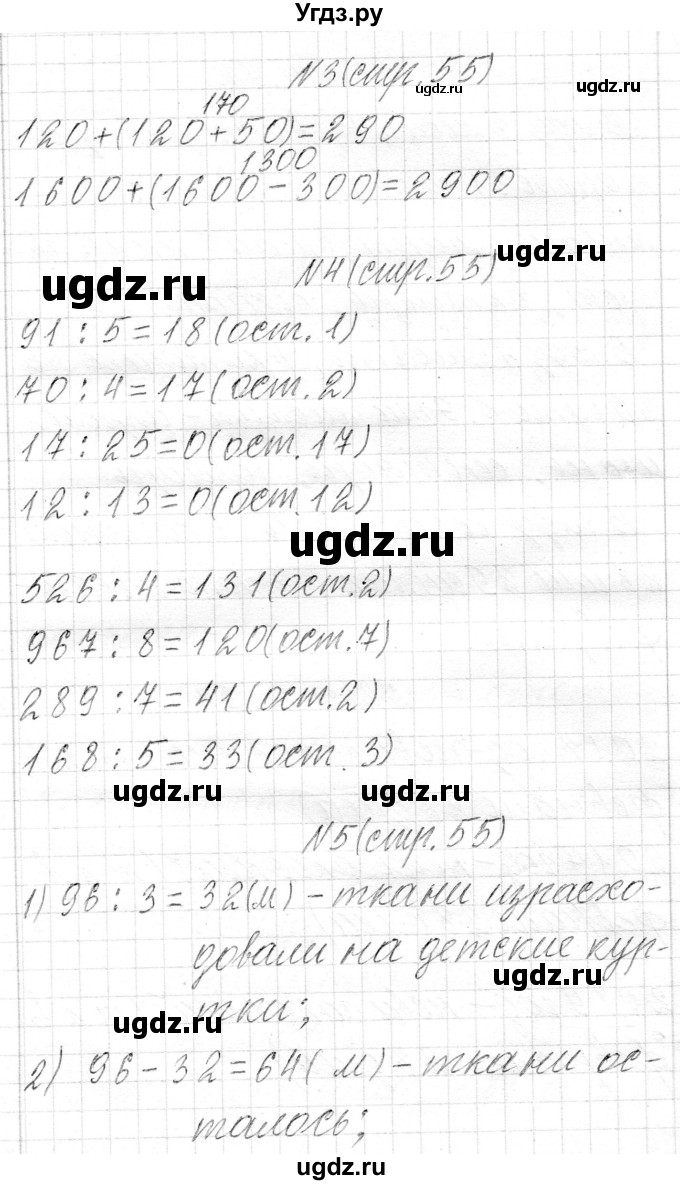 Угдз.ру
№3(стр.55)
ugdz.ru ugdz.ru
170
120+(120+50)=290
1300
1600+(1600-300)=2900
ugdz.ru
№4(стр.55)
ugdz.ru
91:5=18(ост.1)
70:4=17(ост.2)
17:25=0(ост.17)
12:13=0(ост.12)
ugdz.ru
526:4=131(ост.2)
967:8=120(ост.7)
289:7=41(ост.2)
168:5=33(ост.3)
ugdz.ru ugdz.ru
№5(стр.55)
1) 96:3=32(м) - ткани израсхо-
довали на детские кур-
ugdz.ru
тки;
ugdz.ru
2) 96-32=64(м) - ткани ос-
талось;
ugdz.ru